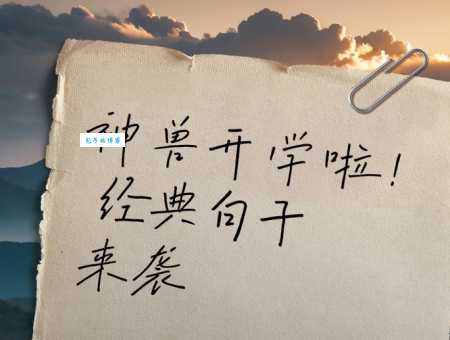 神兽开学啦！
经典句子
来袭